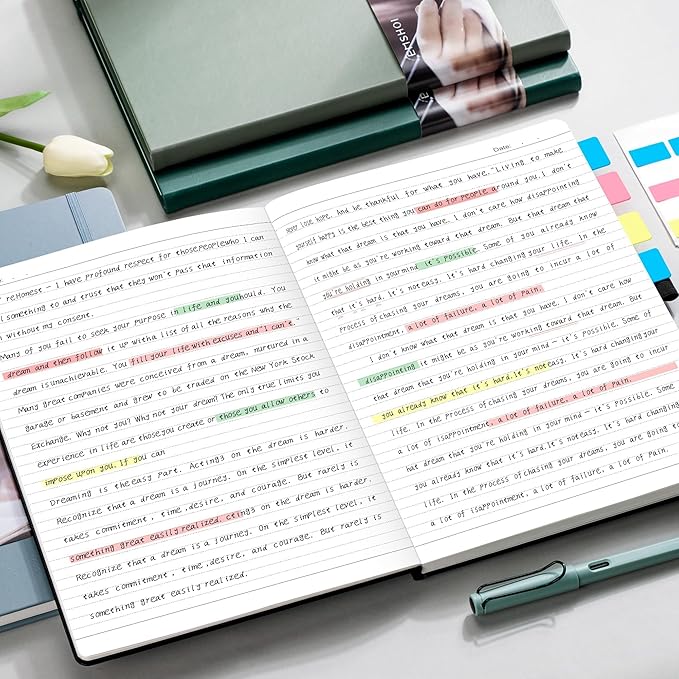 VENSHOI
reHonese – I have profound respect for thosepeoplewho I can
something to and trust that they won't pass that information
without my consent.
Many of you fail to seek your purpose in life and youhould. You
dream and then follow it up witha list of all the reasons why the
dream isunachievable. You fill your life with excuses and "I can't."
Many great companies were conceived from a dream, nurtured in a
garage or basement and grew to be traded on the New York Stock
Exchange. Why not you? Why not your dream? The only true limits you
experience in life are thoseyou create or those you allow others to
impose upon you. If you can
Dreaming is the easy part. Acting on the dream is harder.
Recognize that a dream is a journey. On the simplest level, it
takes commitment, time,desire, and courage. But rarely is
something great easily realized. ctings on the dream is harder.
Recognize that a dream is a journey. On the simplest level, it
takes commitment, time,desire, and courage. But rarely is
something great easily realized.
Date:
never lose hope. And be thankful for what you have. "Living to make
yourself happy is the best thing you can do for people around you.I don't
know what that dream is that you have. I don't care how disappointing
it might be as you're working toward that dream. But that dream that
you're holding in yourmind it's possible. Some of you already know
that it's hard. It's not easy. It's hard changing your life. In the
process of chasing your dreams, you are going to incur a lot of
disappointment, a lot of failure, a lot of pain.
I don't know what that dream is that you have. I don't care how
disappointing it might be as you're working toward that dream. But
that dream that you're holding in your mind – it's possible. Some of
you already know that it's hard.It's not easy. It's hard changing your
life. In the process of chasing your dreams, you are going to incur
a lot of isappointment, a lot of failure, a lot of pain.
hat dream that you're holding in your mind – it's possible. Some
you already know that it's hard.It's not easy. It's hard changing
life. In the process of chasing your dreams, you are going to
a lot of isappointment, a lot of failure, a lot of pain.